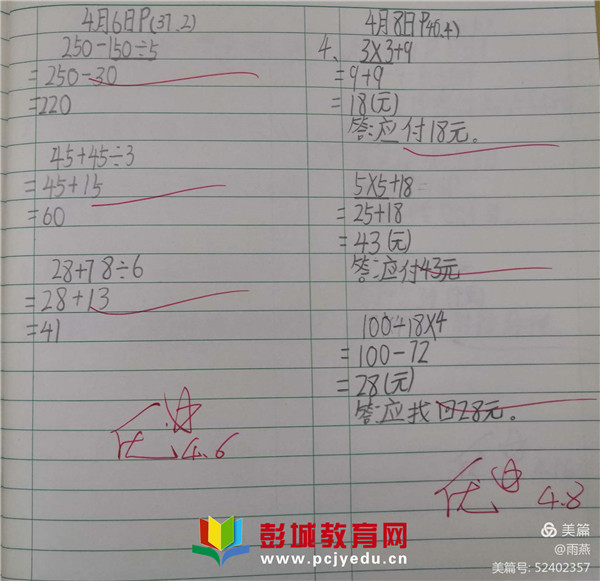 4月6日P(37.2)
250-150÷5
=250-30
=220
45+45÷3
=45+15
=60
28+78÷6
=28+13
=41
优
4.6
4月8日P(40.4)
4、3×3+9
=9+9
=18(元)
答:应付18元。
5×5+18
=25+18
=43(元)
答:应付43元
100-18×4
=100-72
=28(元)
答:应找回28元。
优
4.8
彭城教育网
www.pcjyedu.cn
美篇
@雨燕
美篇号: 52402357